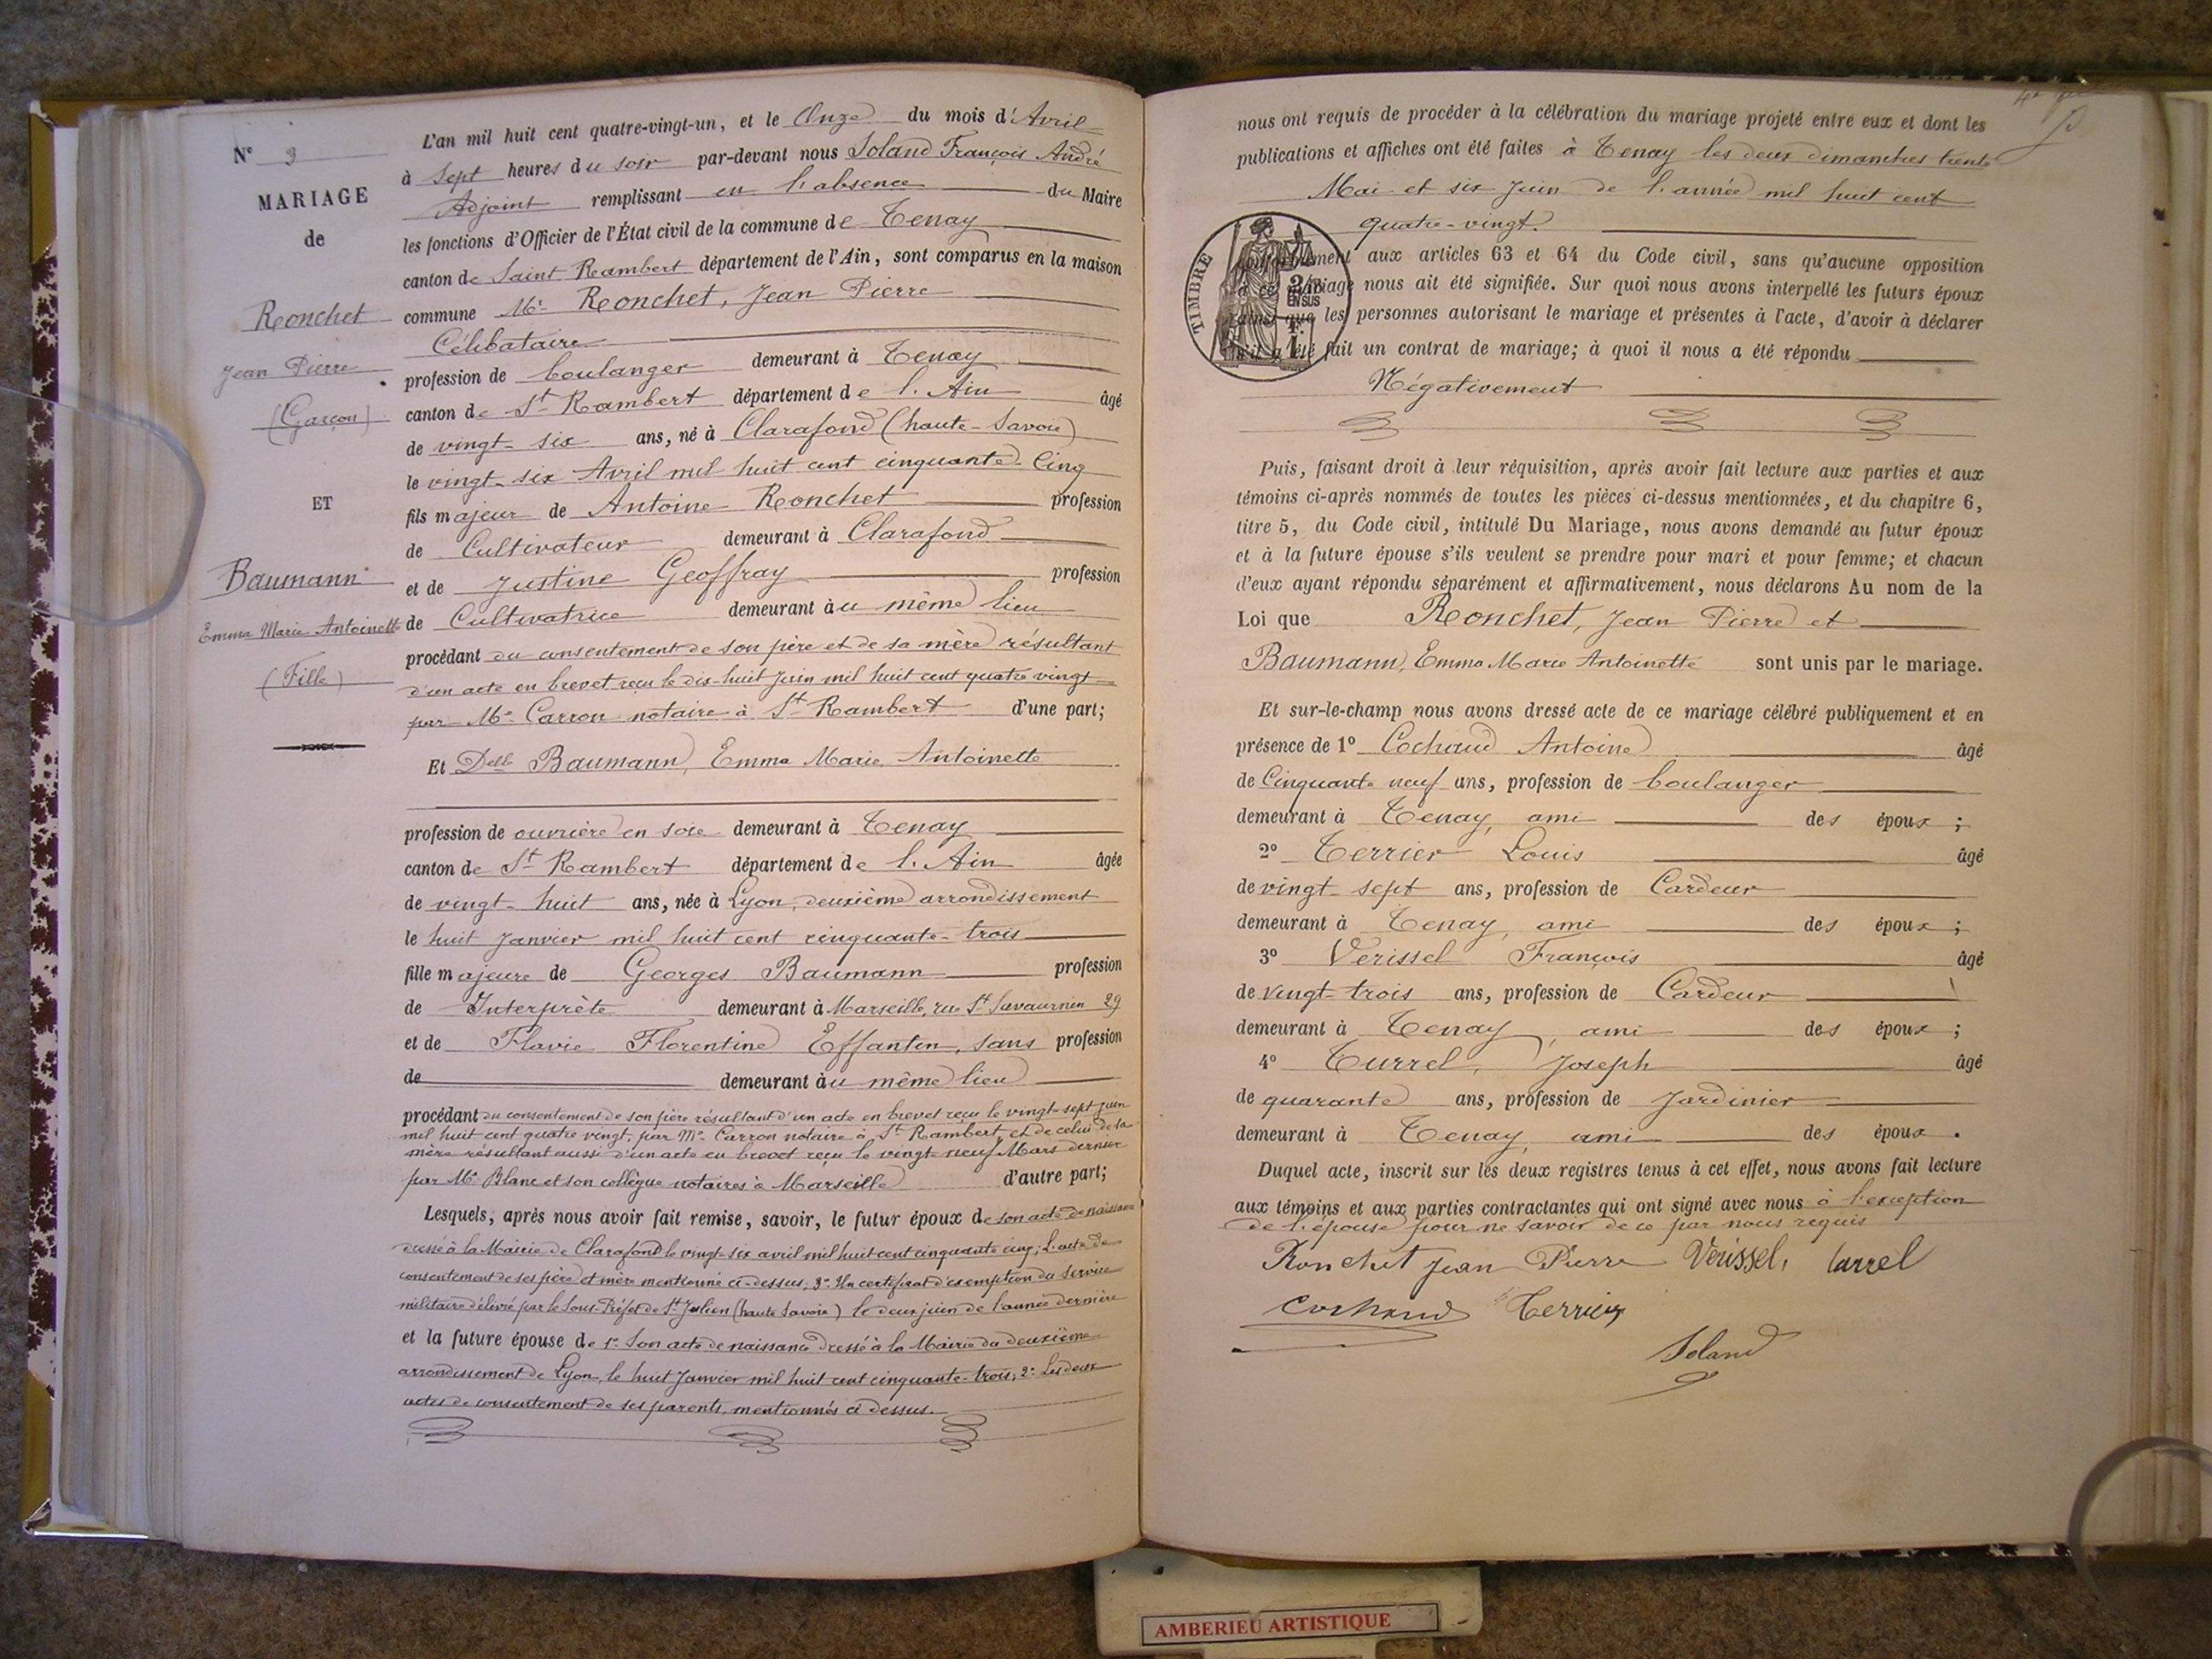 N° 3
MARIAGE
de
Ronchet
Jean Pierre
(Garçon)
ET
Baumann
Emma Marie Antoinette
(Fille)
L'an mil huit cent quatre-vingt-un, et le Onze du mois d'Avril
à Sept heures du soir par-devant nous Soland François André
Adjoint remplissant en l'absence du Maire
les fonctions d'Officier de l'État civil de la commune de Tenay
canton de Saint Rambert département de l'Ain, sont comparus en la maison
commune Mr Ronchet, Jean Pierre
Célibataire
profession de boulanger demeurant à Tenay
canton de St Rambert département de l'Ain âgé
de vingt-six ans, né à Clarafond (haute-Savoie)
le vingt-six Avril mil huit cent cinquante-Cinq
fils majeur de Antoine Ronchet profession
de Cultivateur demeurant à Clarafond
et de Justine Geoffray profession
de Cultivatrice demeurant au même lieu
procédant du consentement de son père et de sa mère résultant
d'un acte en brevet reçu le dix-huit Juin mil huit cent quatre vingt
par Me Carron notaire à St Rambert d'une part;
Et Delle Baumann, Emma Marie Antoinette
profession de ouvrière en soie demeurant à Tenay
canton de St Rambert département de l'Ain âgée
de vingt-huit ans, née à Lyon, deuxième arrondissement
le huit Janvier mil huit cent cinquante-trois
fille majeure de Georges Baumann profession
de Interprète demeurant à Marseille, rue St Savournin 29
et de Flavie Florentine Effantin, sans profession
de demeurant au même lieu
procédant du consentement de son père résultant d'un acte en brevet reçu le vingt-sept juin
mil huit cent quatre vingt, par Me Carron notaire à St Rambert, et de celui de la
mère résultant aussi d'un acte en brevet reçu le vingt-neuf Mars dernier
par Me Blanc et son collègue notaires à Marseille d'autre part;
Lesquels, après nous avoir fait remise, savoir, le futur époux de son acte de naissance
dressé à la Mairie de Clarafond le vingt-six avril mil huit cent cinquante cinq; L'acte de
consentement de ses père et mère mentionné ci-dessus; 3° Un certificat d'exemption du service
militaire délivré par le Sous-Préfet de St Julien (haute Savoie) le deux juin de l'année dernière
et la future épouse de 1° Son acte de naissance dressé à la Mairie du deuxième
arrondissement de Lyon, le huit Janvier mil huit cent cinquante-trois; 2° Les deux
actes de consentement de ses parents, mentionnés ci dessus.
nous ont requis de procéder à la célébration du mariage projeté entre eux et dont les
publications et affiches ont été faites à Tenay les deux dimanches trente
Mai et six Juin de l'année mil huit cent
quatre-vingt.
TIMBRE
2/10
EN SUS
aux articles 63 et 64 du Code civil, sans qu'aucune opposition
à ce mariage nous ait été signifiée. Sur quoi nous avons interpellé les futurs époux
ainsi que les personnes autorisant le mariage et présentes à l'acte, d'avoir à déclarer
s'il a été fait un contrat de mariage; à quoi il nous a été répondu
Négativement
Puis, faisant droit à leur réquisition, après avoir fait lecture aux parties et aux
témoins ci-après nommés de toutes les pièces ci-dessus mentionnées, et du chapitre 6,
titre 5, du Code civil, intitulé Du Mariage, nous avons demandé au futur époux
et à la future épouse s'ils veulent se prendre pour mari et pour femme; et chacun
d'eux ayant répondu séparément et affirmativement, nous déclarons Au nom de la
Loi que Ronchet, Jean Pierre et
Baumann, Emma Marie Antoinette sont unis par le mariage.
Et sur-le-champ nous avons dressé acte de ce mariage célébré publiquement et en
présence de 1° Cochaud Antoine âgé
de Cinquante neuf ans, profession de boulanger
demeurant à Tenay, ami des époux;
2° Terrier Louis âgé
de vingt-sept ans, profession de Cardeur
demeurant à Tenay, ami des époux;
3° Verissel François âgé
de vingt-trois ans, profession de Cardeur
demeurant à Tenay, ami des époux;
4° Turrel, Joseph âgé
de quarante ans, profession de Jardinier
demeurant à Tenay, ami des époux.
Duquel acte, inscrit sur les deux registres tenus à cet effet, nous avons fait lecture
aux témoins et aux parties contractantes qui ont signé avec nous à l'exception
de l'épouse pour ne savoir de ce par nous requis
Ronchet Jean Pierre Verissel, turrel
Cochaud Terrier
Soland
AMBERIEU ARTISTIQUE